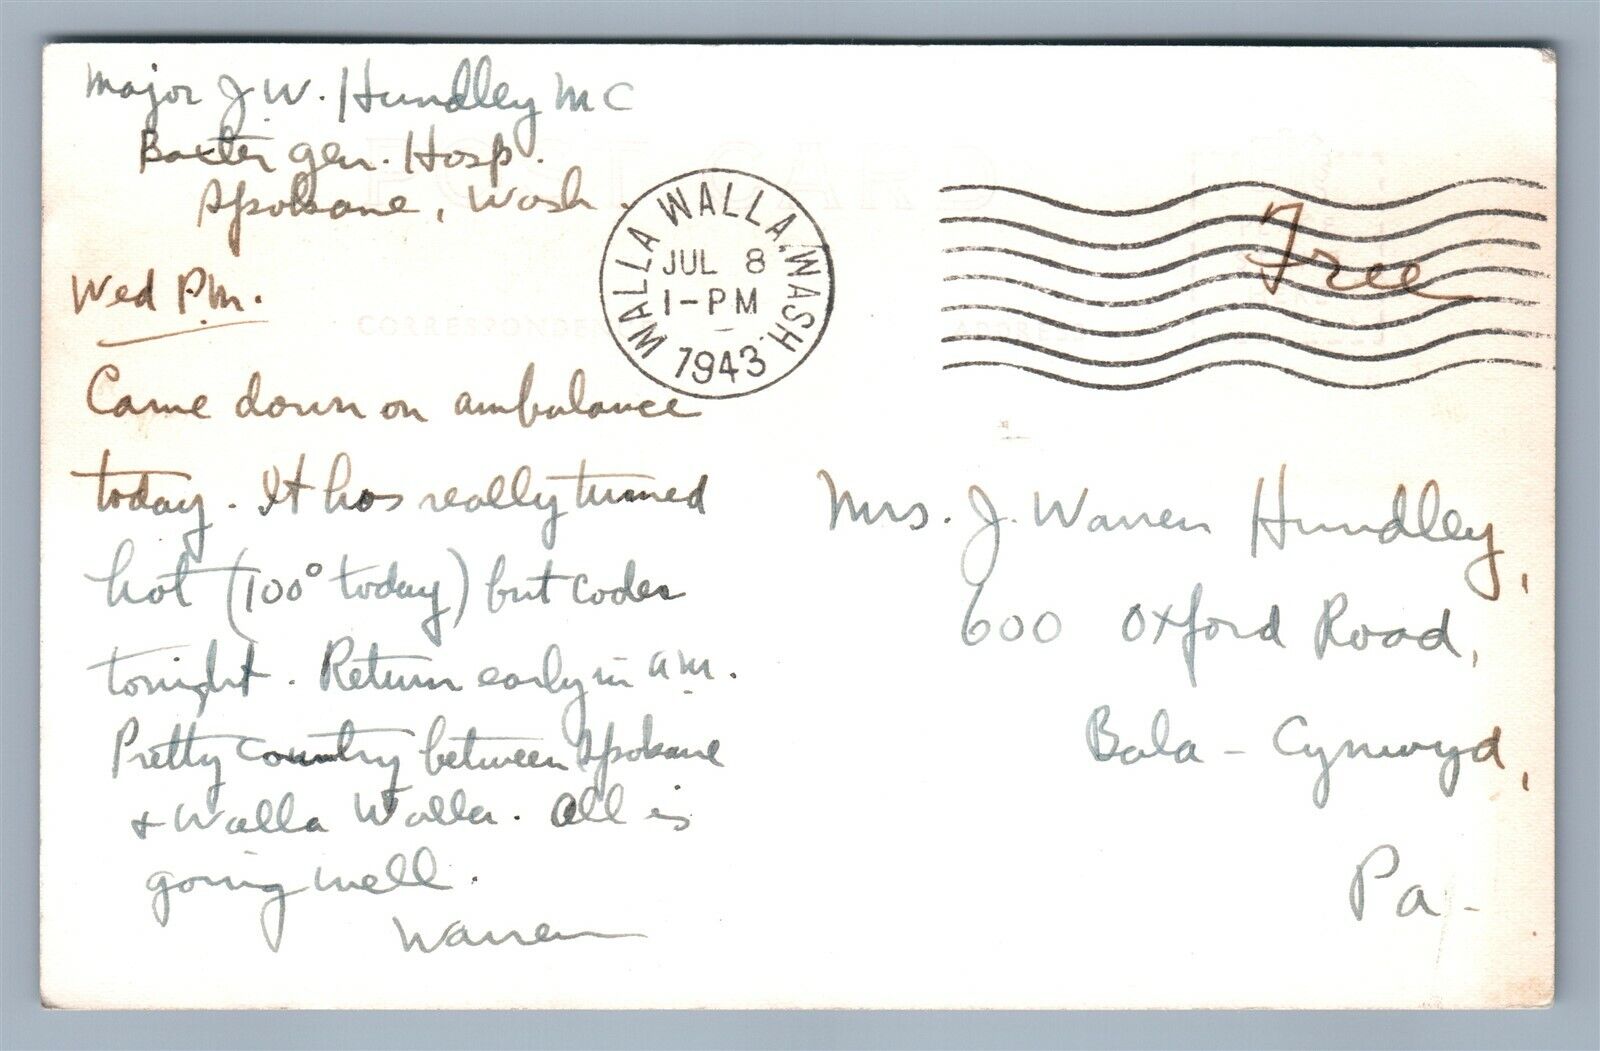 Major J. W. Hundley MC
Baxter Gen. Hosp.
Spokane, Wash.
WALLA WALLA, WASH.
JUL 8
1-PM
1943
Free
POST CARD
CORRESPONDEN
ADDRESS
Wed P.M.
Came down on ambulance
today. It has really turned
hot (100° today) but cooler
tonight. Return early in AM.
Pretty country between Spokane
& Walla Walla. All is
going well.
Warren
Mrs. J. Warren Hundley,
600 Oxford Road,
Bala-Cynwyd,
Pa-